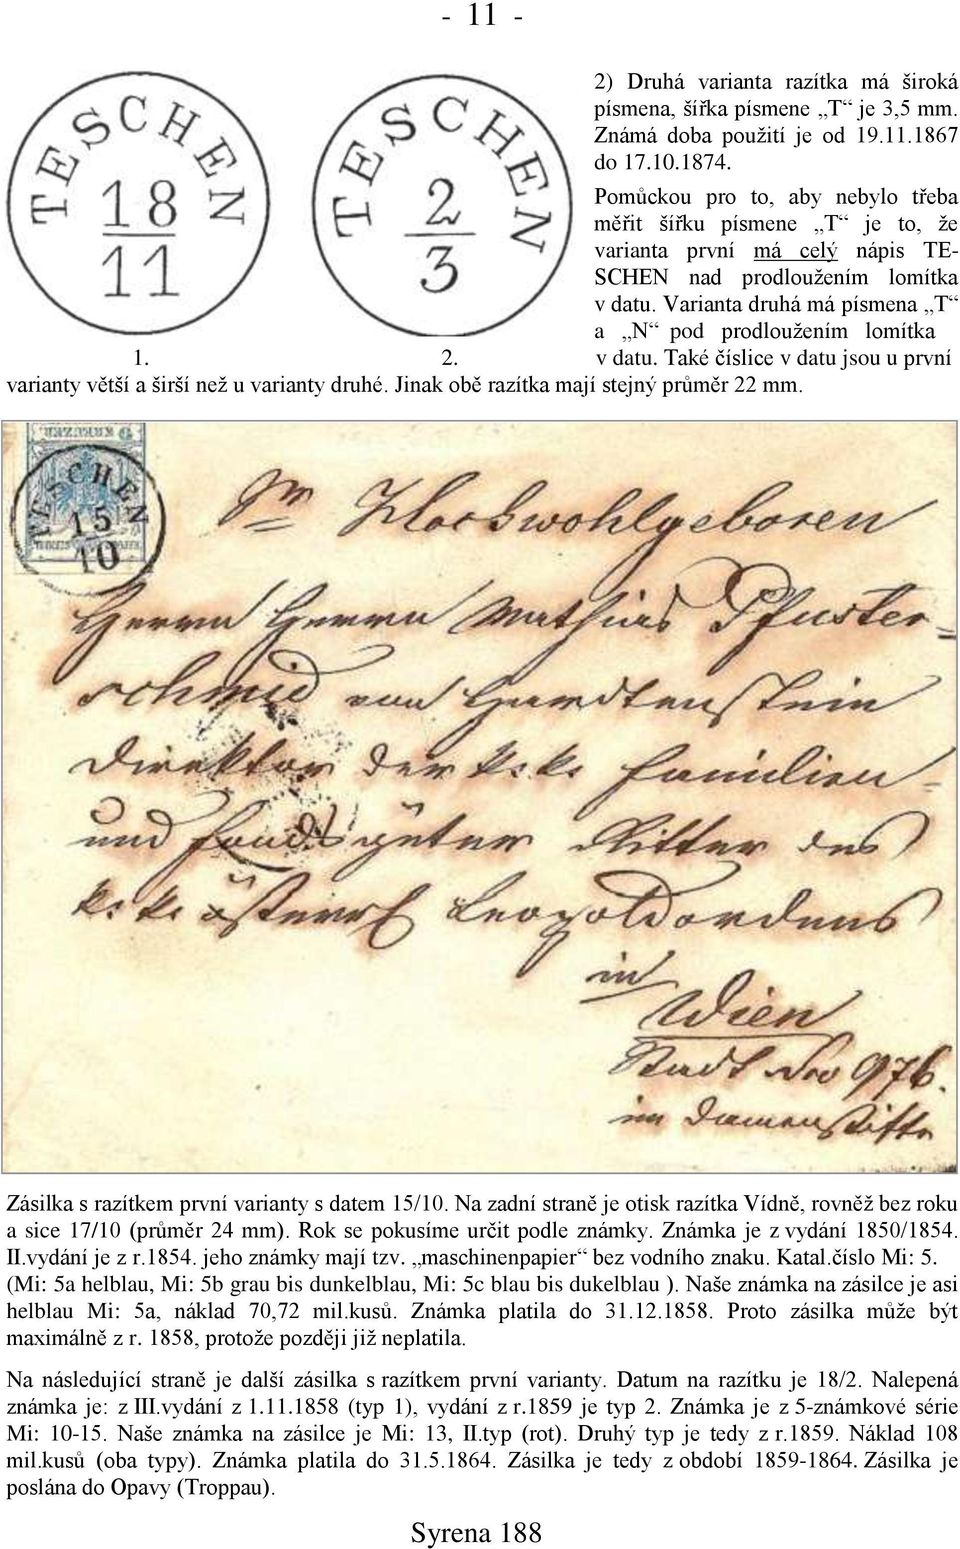 - 11 -
TESCHEN
18
11
TESCHEN
2
3
1. 2.
2) Druhá varianta razítka má široká
písmena, šířka písmene „T“ je 3,5 mm.
Známá doba použití je od 19.11.1867
do 17.10.1874.
Pomůckou pro to, aby nebylo třeba
měřit šířku písmene „T“ je to, že
varianta první má celý nápis TE-
SCHEN nad prodloužením lomítka
v datu. Varianta druhá má písmena „T“
a „N“ pod prodloužením lomítka
v datu. Také číslice v datu jsou u první
varianty větší a širší než u varianty druhé. Jinak obě razítka mají stejný průměr 22 mm.
TESCHEN
15
10
Sr Hochwohlgeboren
Herrn Herrn Mathias Pfuster-
schmid von Hardtenstein
Direktor der k: k: Familien-
und Fondsgüter Ritter des
k: k: österr Leopoldordens
in
Wien
Stadt No 976.
im Damenstifte
Zásilka s razítkem první varianty s datem 15/10. Na zadní straně je otisk razítka Vídně, rovněž bez roku
a sice 17/10 (průměr 24 mm). Rok se pokusíme určit podle známky. Známka je z vydání 1850/1854.
II.vydání je z r.1854. jeho známky mají tzv. „maschinenpapier“ bez vodního znaku. Katal.číslo Mi: 5.
(Mi: 5a helblau, Mi: 5b grau bis dunkelblau, Mi: 5c blau bis dukelblau ). Naše známka na zásilce je asi
helblau Mi: 5a, náklad 70,72 mil.kusů. Známka platila do 31.12.1858. Proto zásilka může být
maximálně z r. 1858, protože později již neplatila.
Na následující straně je další zásilka s razítkem první varianty. Datum na razítku je 18/2. Nalepená
známka je: z III.vydání z 1.11.1858 (typ 1), vydání z r.1859 je typ 2. Známka je z 5-známkové série
Mi: 10-15. Naše známka na zásilce je Mi: 13, II.typ (rot). Druhý typ je tedy z r.1859. Náklad 108
mil.kusů (oba typy). Známka platila do 31.5.1864. Zásilka je tedy z období 1859-1864. Zásilka je
poslána do Opavy (Troppau).
Syrena 188